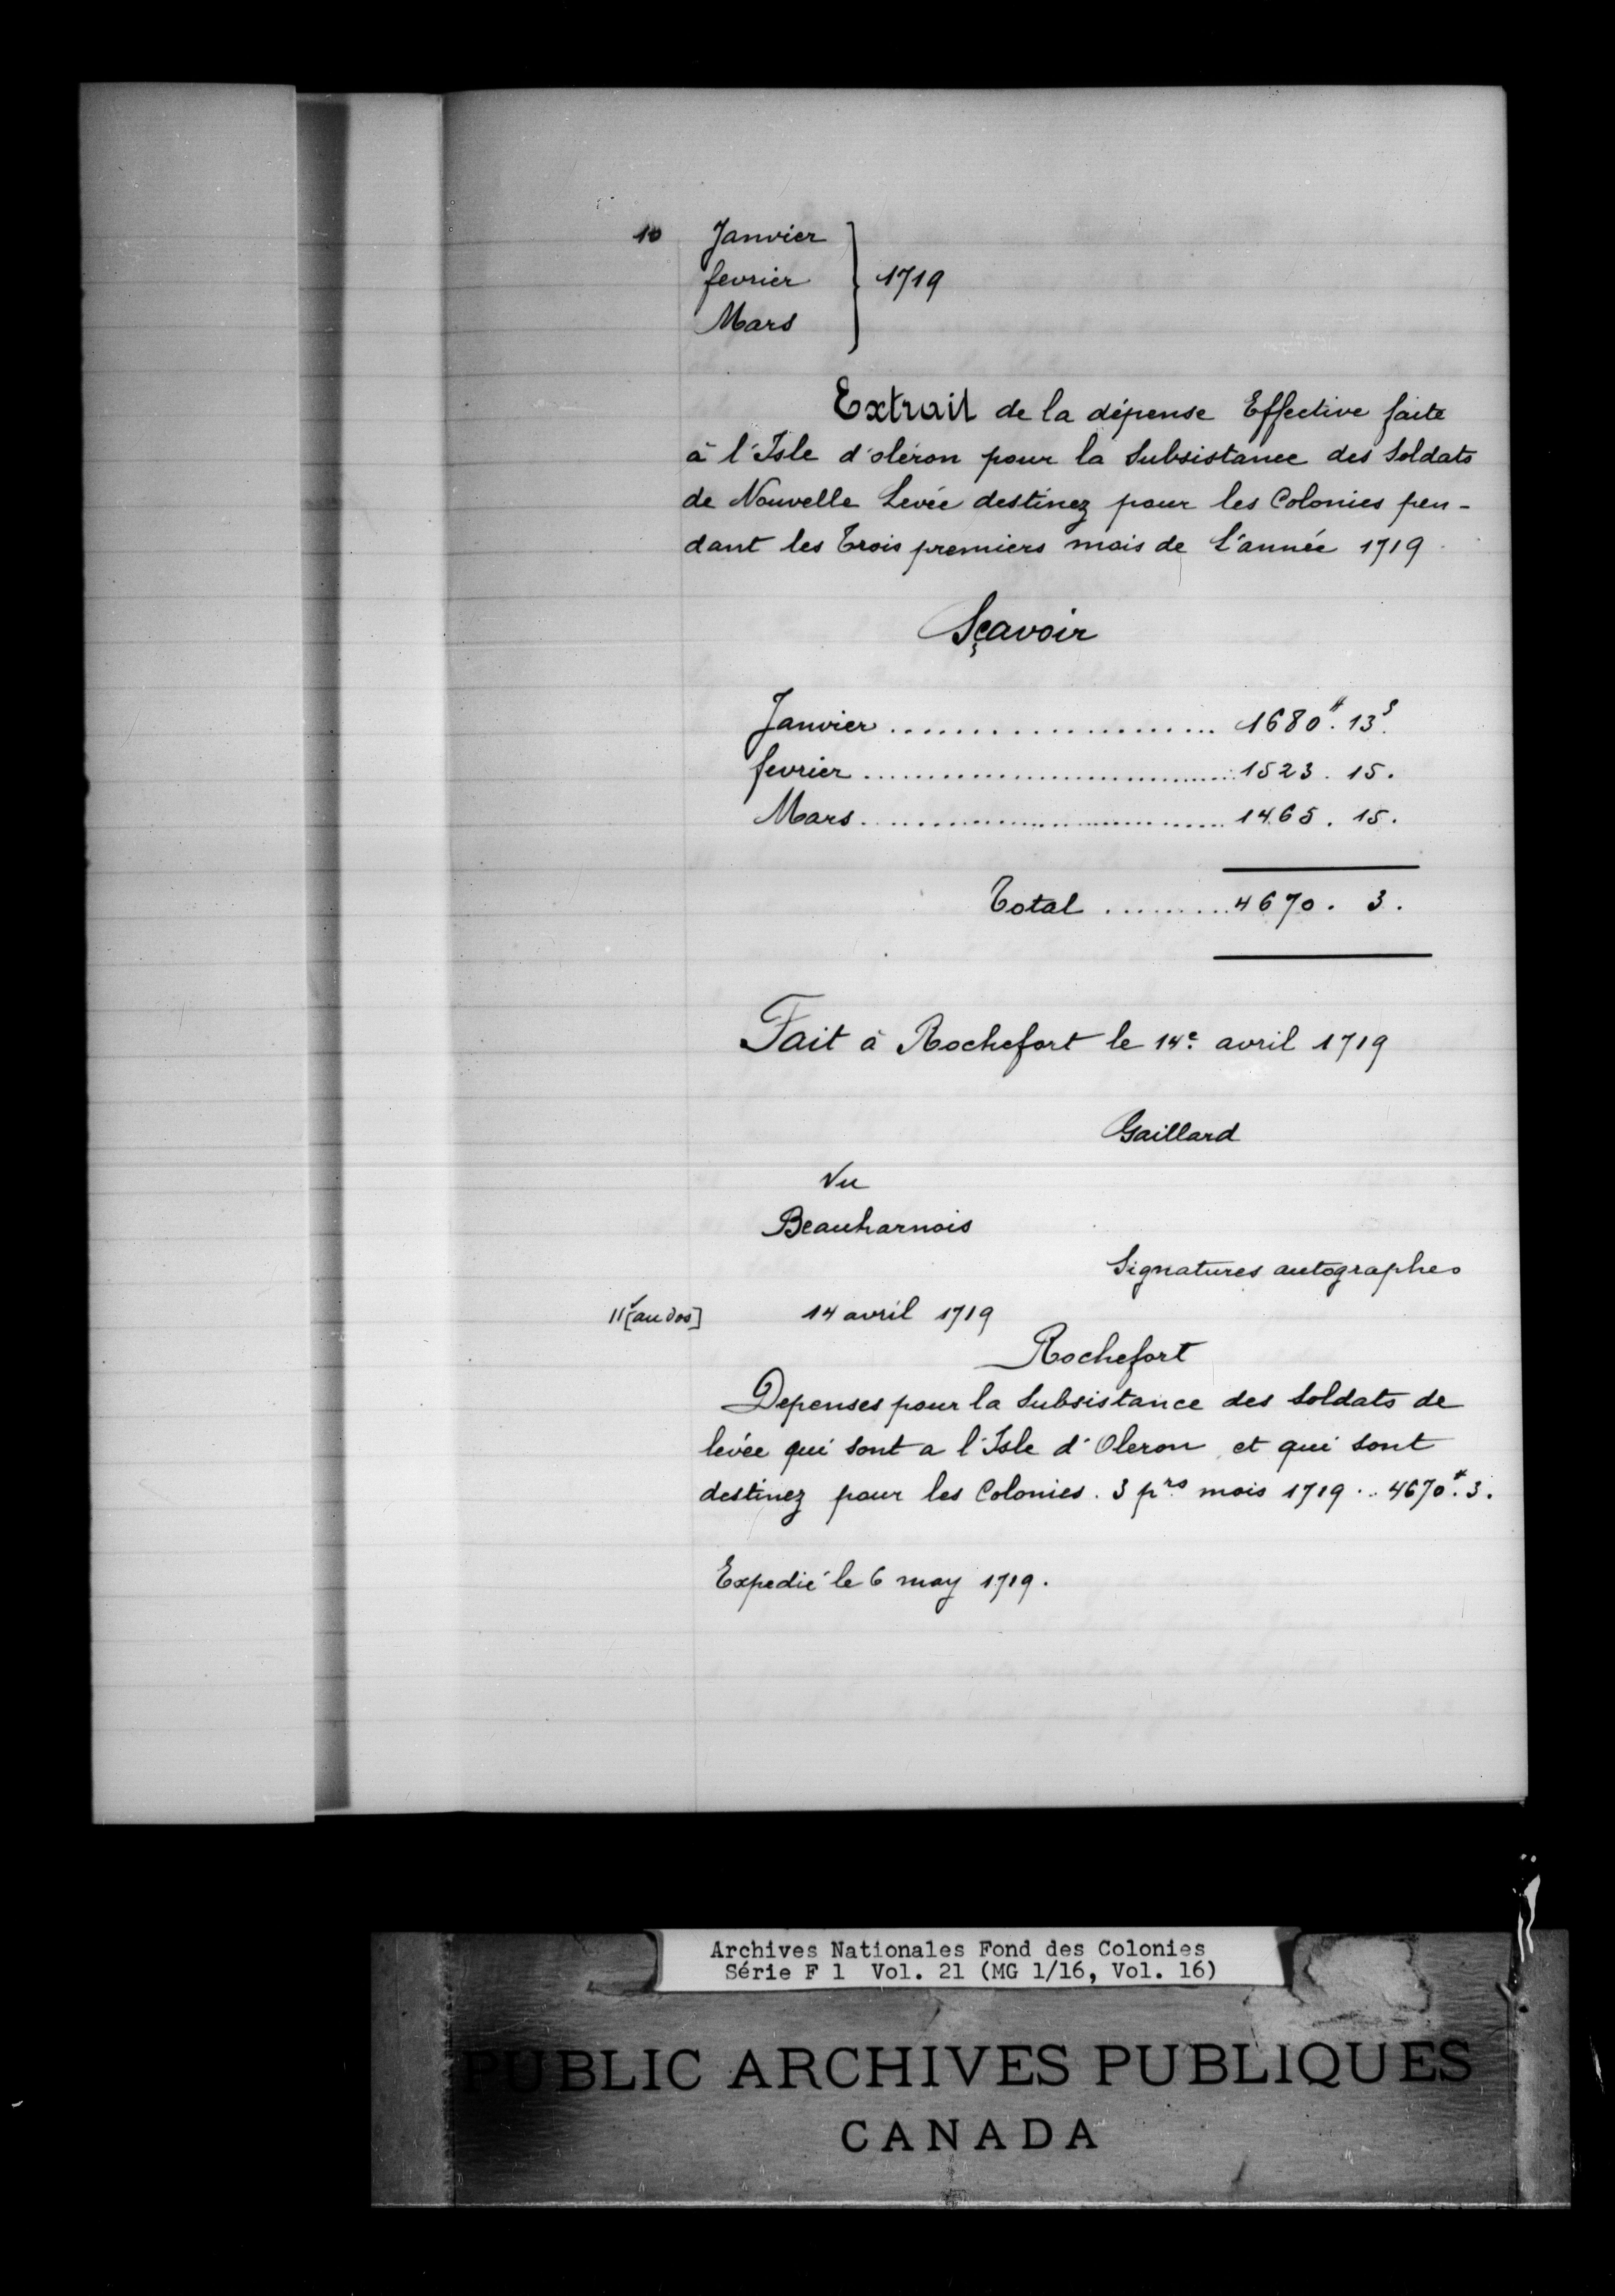 10 Janvier
fevrier } 1719
Mars
Extrait de la dépense Effective faite
à l'Isle d'oléron pour la Subsistance des Soldats
de Nouvelle Levée destinez pour les Colonies pen-
dant les Trois premiers mois de L'année 1719.
Sçavoir
Janvier ........................ 1680#. 13s.
fevrier ........................ 1523. 15.
Mars ........................ 1465. 15.
Total ......... 4670. 3.
Fait à Rochefort le 14e avril 1719
Gaillard
Vu
Beauharnois
Signatures autographes
11v [au dos] 14 avril 1719
Rochefort
Depenses pour la Subsistance des Soldats de
levée qui sont a l'Isle d'Oleron et qui sont
destinez pour les Colonies. 3 prs mois 1719 .. 4670#. 3.
Expedié le 6 may 1719.
Archives Nationales Fond des Colonies
Série F 1 Vol. 21 (MG 1/16, Vol. 16)
PUBLIC ARCHIVES PUBLIQUES
CANADA